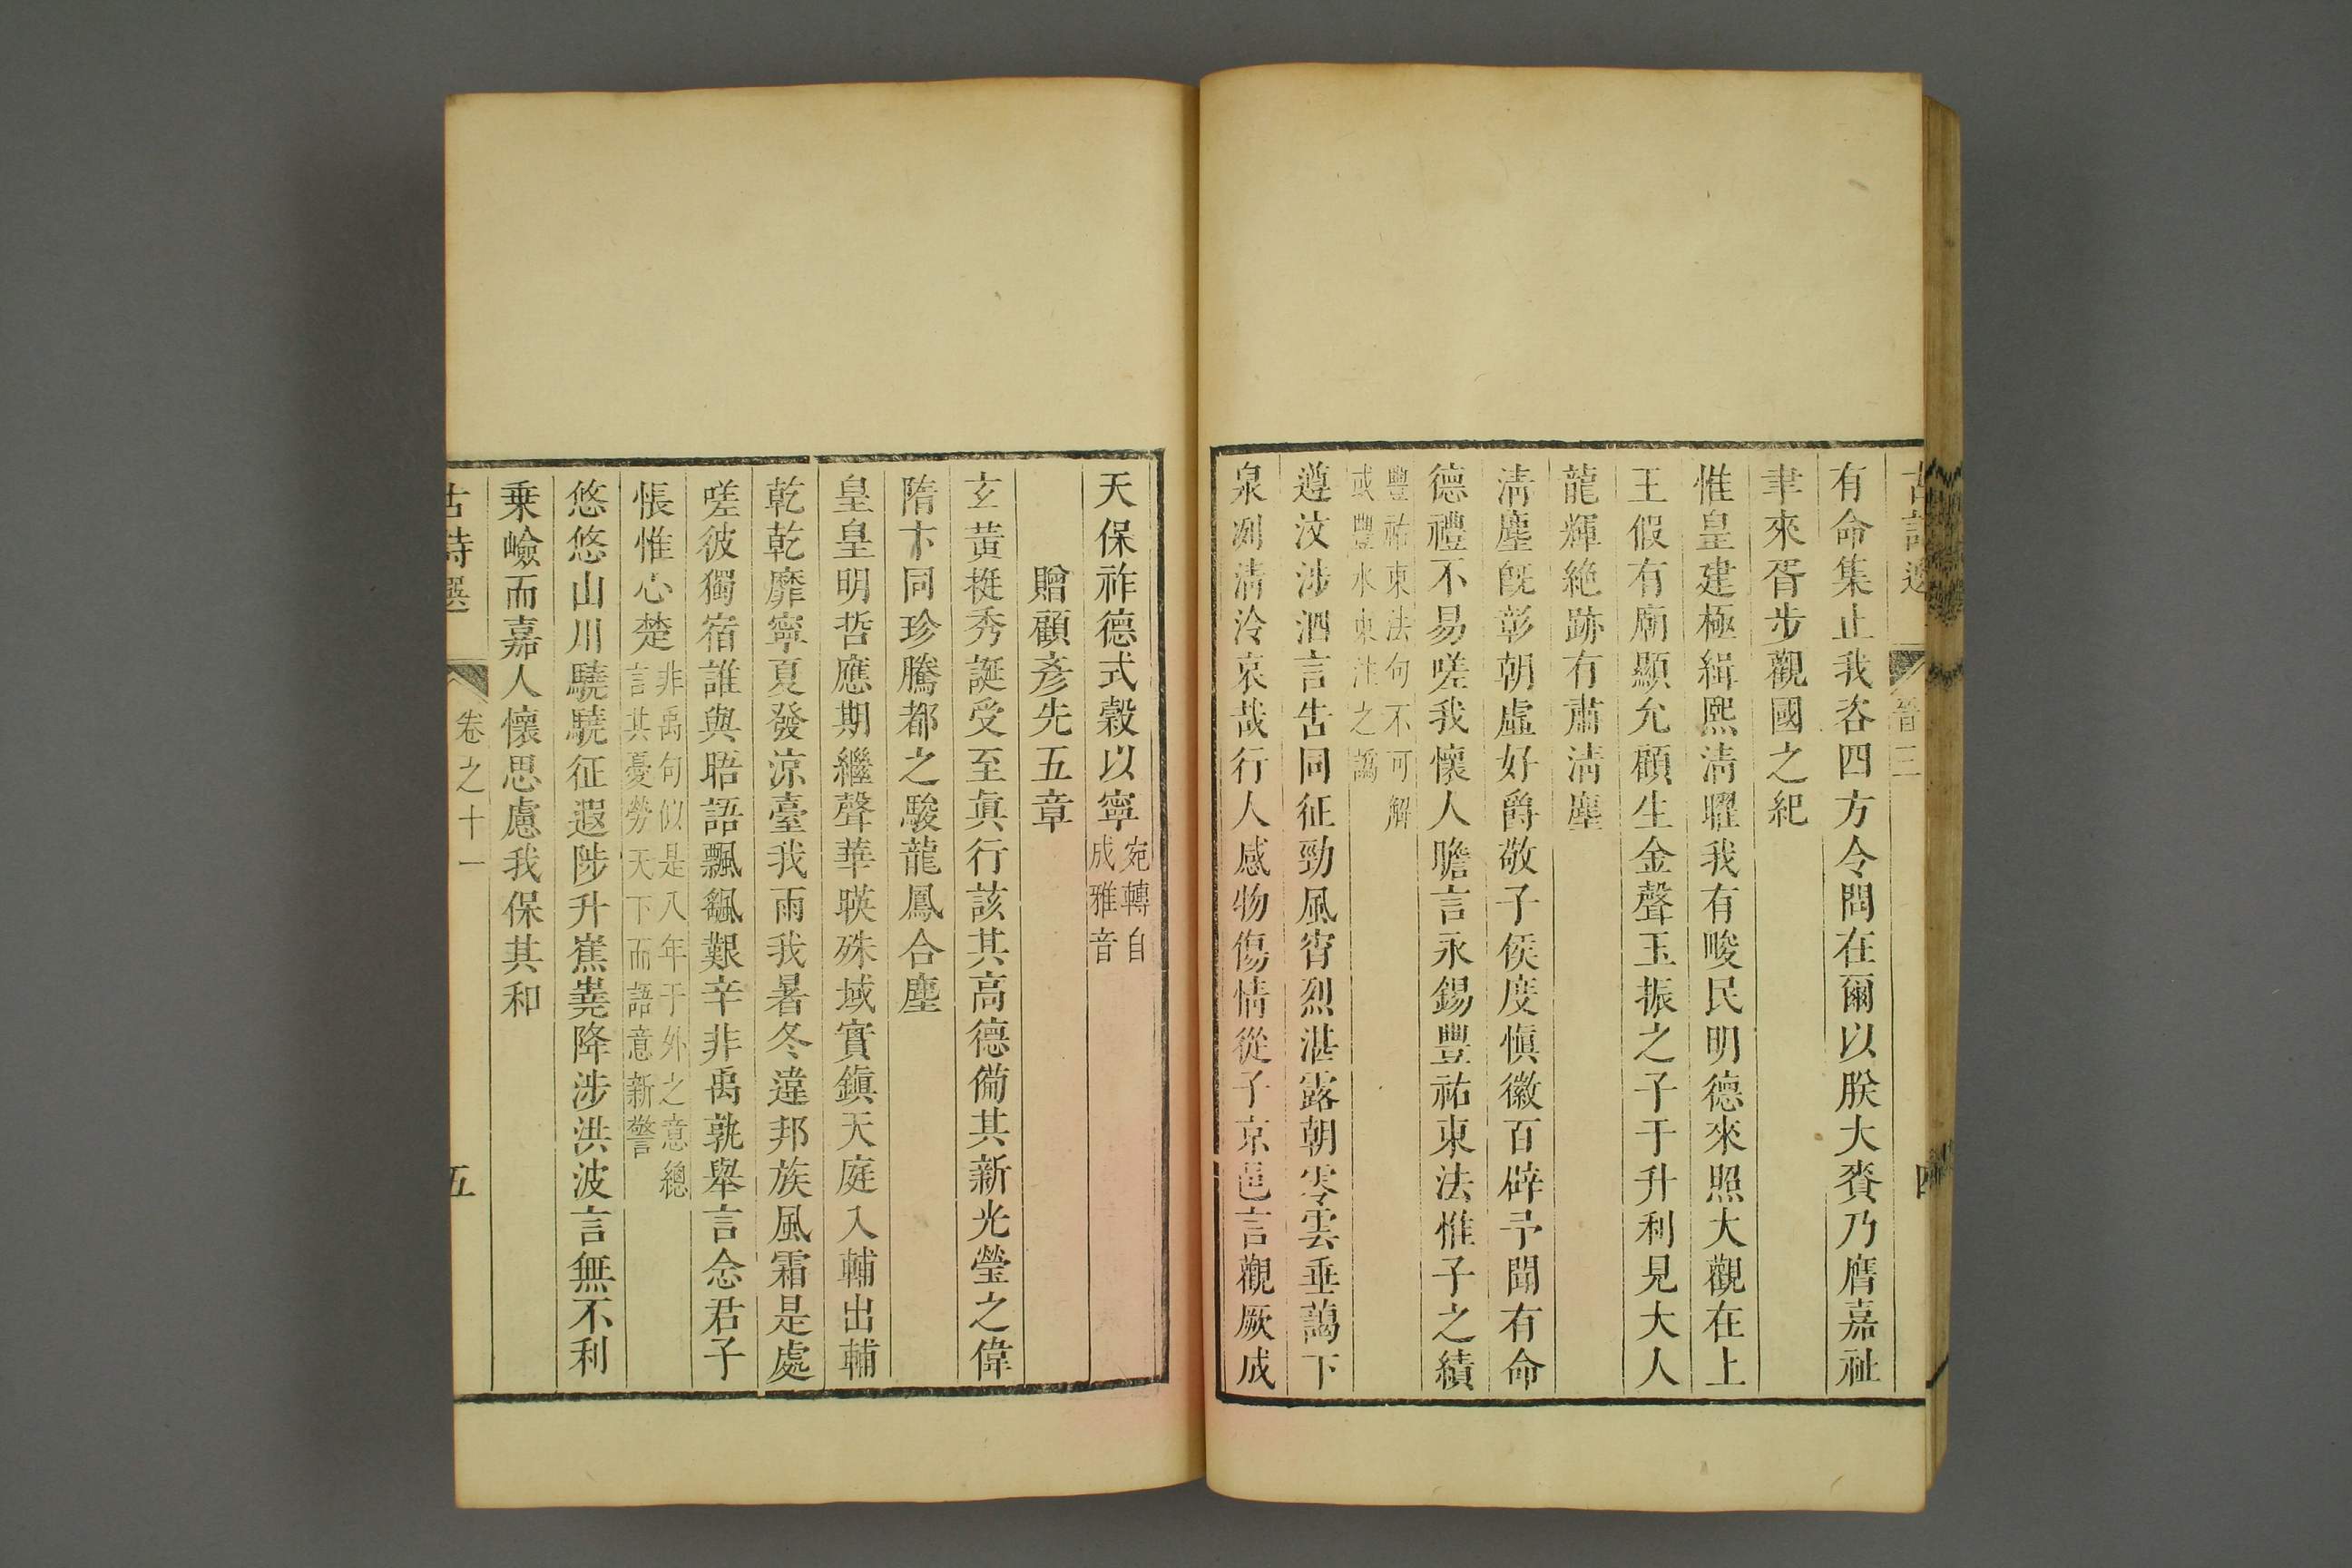 古詩選 晉三 四
有命集止我咨四方令聞在爾以朕大賚乃膺嘉祉
聿來胥步觀國之紀
惟皇建極緝熙清曜我有畯民明德來照大觀在上
王假有廟顯允顧生金聲玉振之子于升利見大人
龍輝絶跡有肅清塵
清塵旣彰朝虛好爵敬子侯度愼徽百辟予聞有命
德禮不易嗟我懷人瞻言永錫豐祐東法惟子之績
豐祐東法句不可解
或豐水東注之譌
遵汶涉泗言告同征勁風宵烈湛露朝零雲垂藹下
泉洌清泠哀哉行人感物傷情從子京邑言觀厥成
天保祚德式穀以寧宛轉自
成雅音
贈顧彥先五章
玄黃挺秀誕受至眞行該其高德備其新光瑩之偉
隋卞同珍騰都之駿龍鳳合塵
皇皇明哲應期繼聲華暎殊域實鎭天庭入輔出輔
乾乾靡寧夏發涼臺我雨我暑冬違邦族風霜是處
嗟彼獨宿誰與晤語飄飖艱辛非禹孰舉言念君子
悵惟心楚非禹句似是八年于外之意總
言其憂勞天下而語意新警
悠悠山川驍驍征遐陟升嶣嶤降涉洪波言無不利
乗嶮而嘉人懷思慮我保其和
古詩選 卷之十一 五